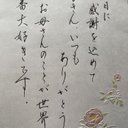 日に
感謝を込めて
さん いつも
ありがとう
お母さんのことが世界
番大好きです。